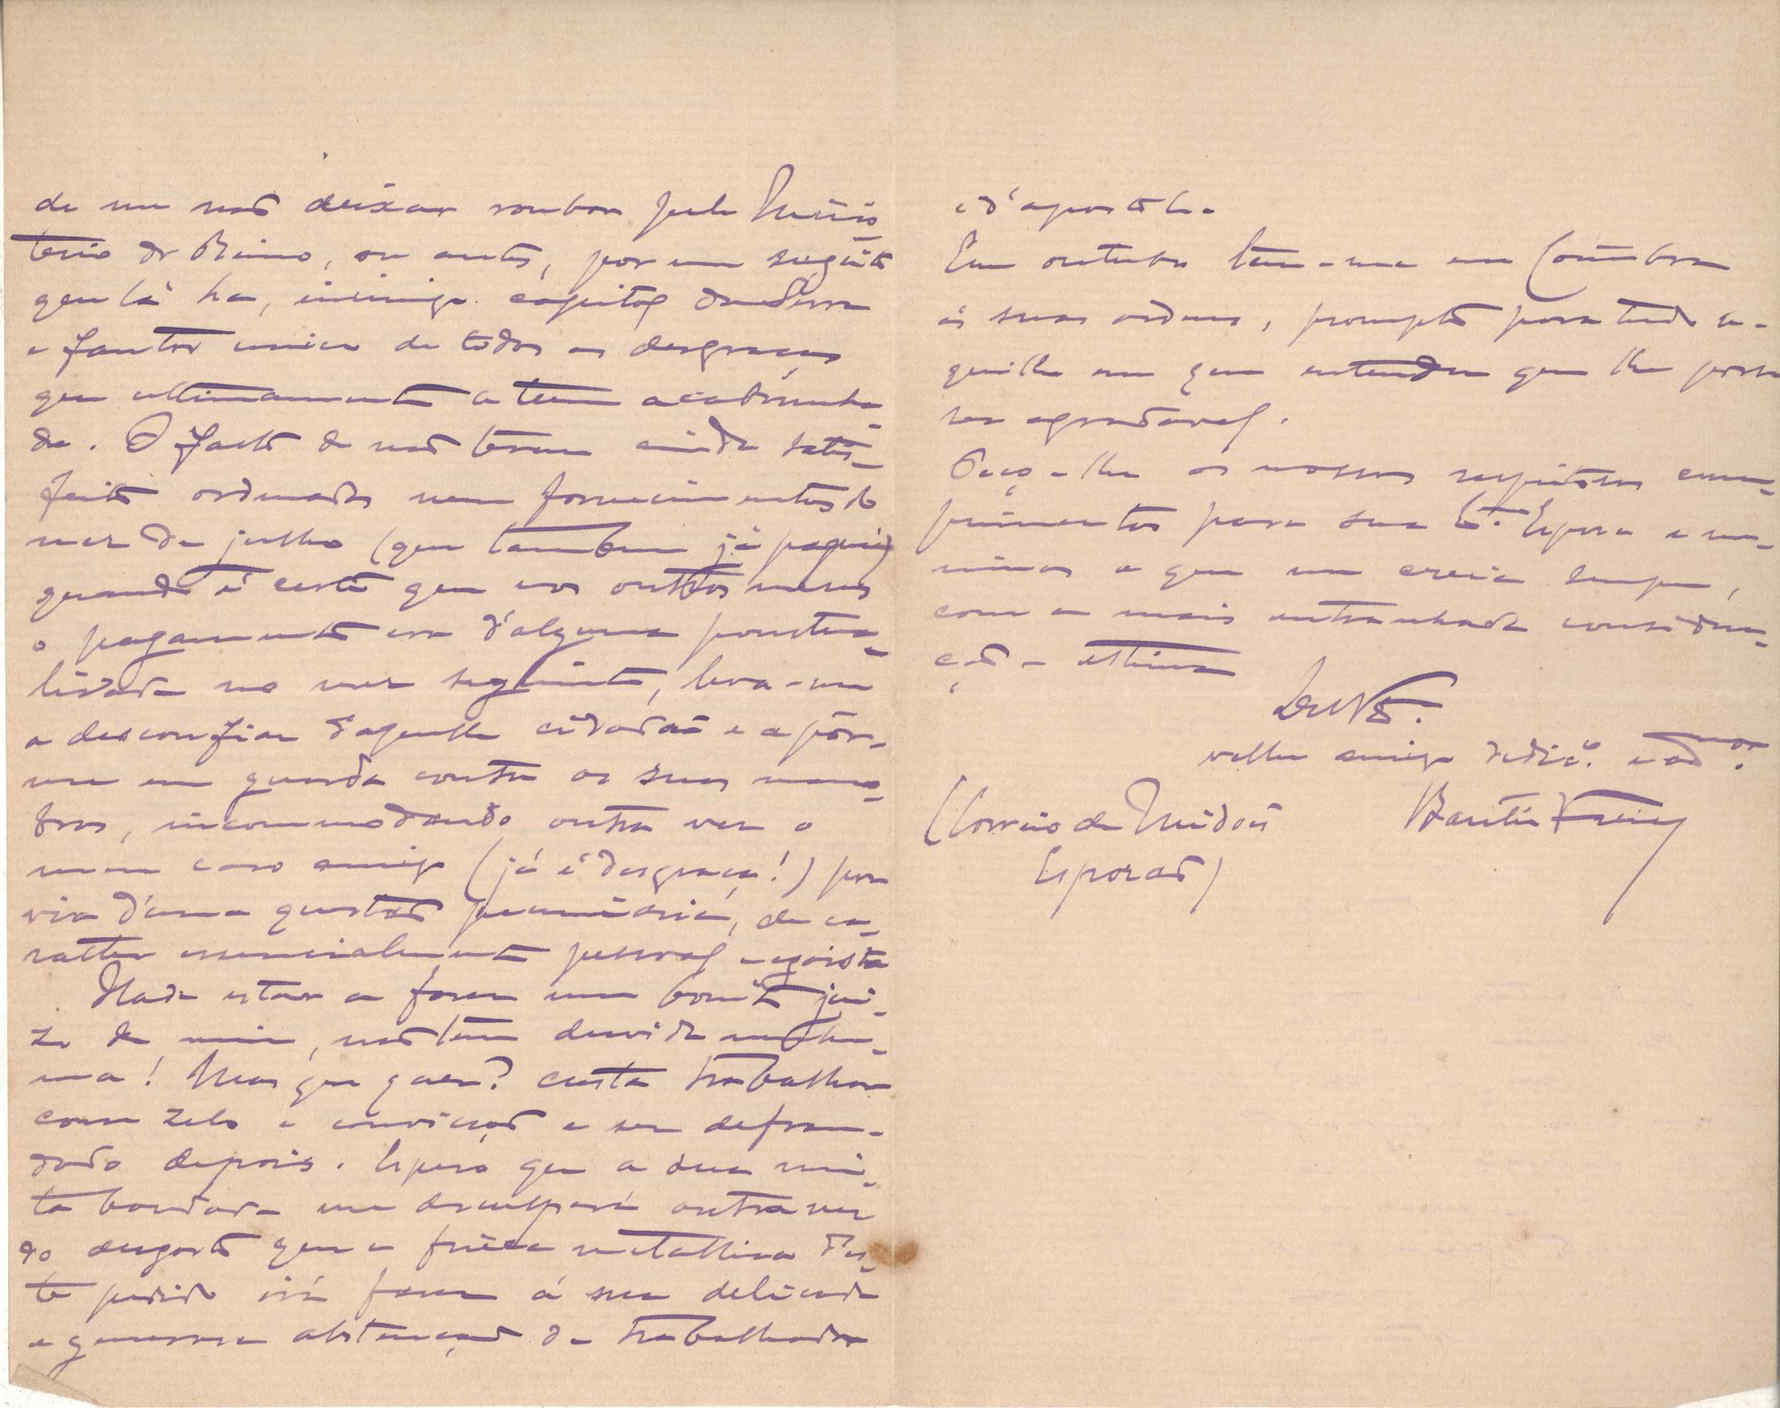 de me não deixar roubar pelo Minis-
terio do Reino, ou antes, por um sugeito
que lá ha, inimigo capital da Serra
e fautor unico de todas as desgraças
que ultimamente a teem acabrunha-
do. O facto de não terem ainda satis-
feito ordenados nem fornecimentos do
mez de julho (que tambem já paguei)
quando é certo que nos outros meses
o pagamento era d'alguma pontua-
lidade no mez seguinte, leva-me
a desconfiar d'aquelle cidadão e a pôr-
me em guarda contra as suas mano-
bras, incommodando outra vez o
meu caro amigo (já é desgraça!) por
via d'uma questão pecuniaria, de ca-
racter essencialmente pessoal e egoista
Hade estar a fazer um bonito jui-
zo de mim, não tem duvida nenhu-
ma! Mas que quer? custa trabalhar
com zelo e convicção e ser defrau-
dado depois. Espero que a sua mi-
ta bondade me desculpará outra vez
do desgosto que a frieza metallica d'es-
te pedido irá fazer á sua delicada
e generosa abstenção de trabalhador
e d'apostolo.
Em outubro tem-me em Coimbra
ás suas ordens, prompto para tudo a-
quillo em que entenda que lhe possa
ser agradavel.
Peço-lhe os nossos respeitosos cum-
primentos para sua Ex.ª Esposa e me-
ninos e que me creia sempre,
com a mais entranhada considera-
ção e estima
De V. Ex.
velho amigo dedic.º e ad.mor
(Correio de Midões
Esporão)